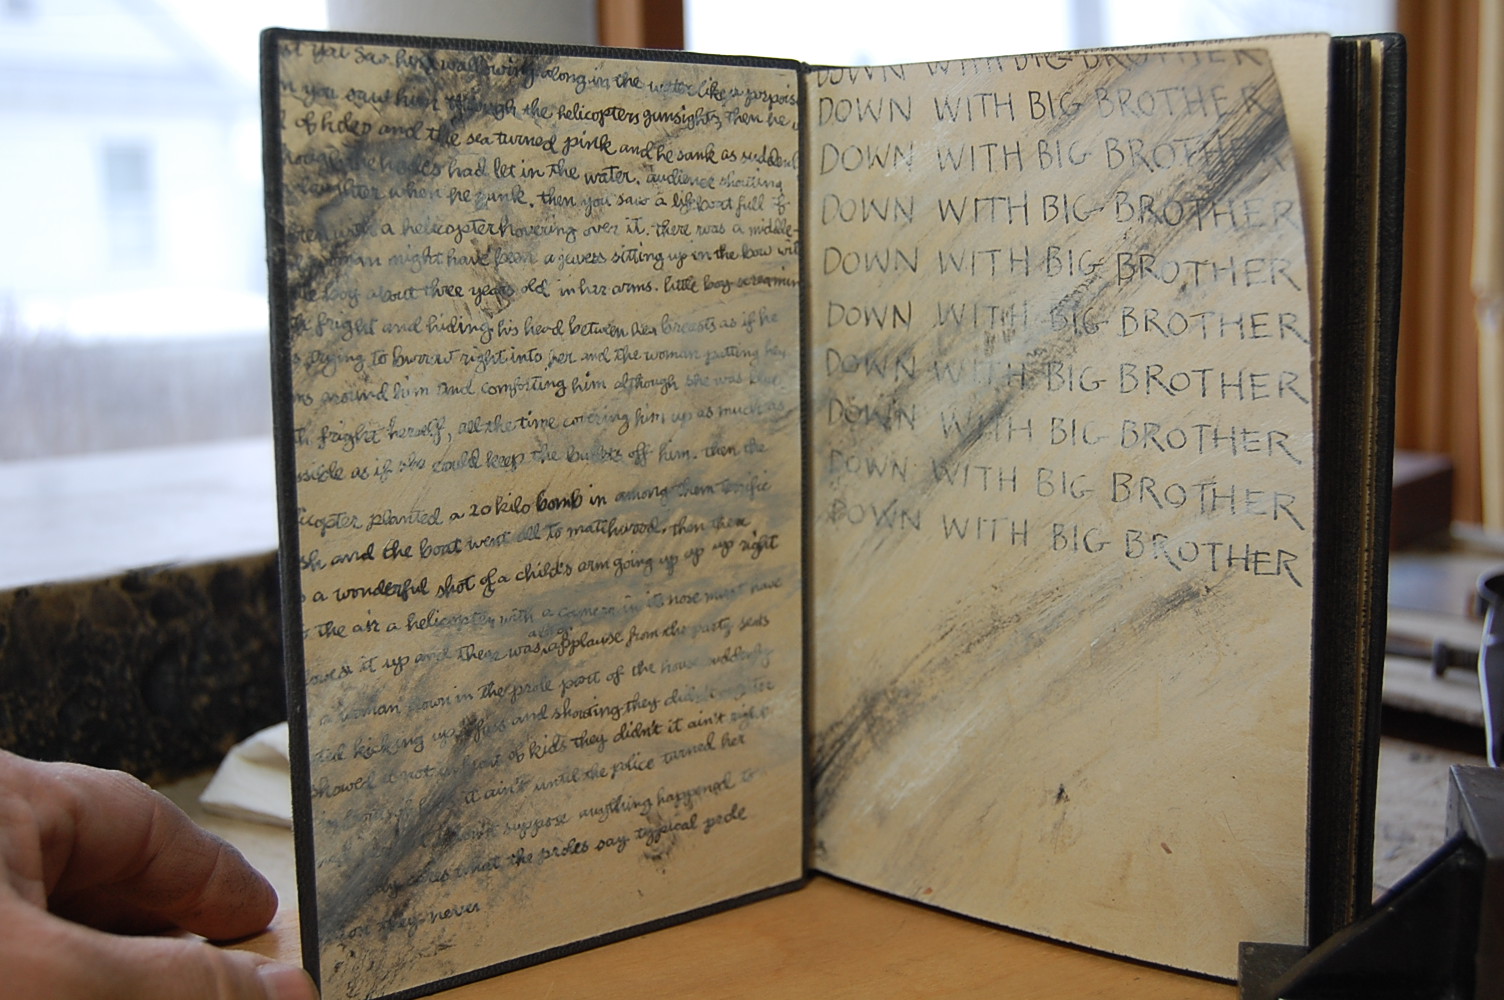 you saw him wallowing along in the water like a porpoise
you saw him through the helicopters gunsights, then he
of holes and the sea turned pink and he sank as suddenly
the holes had let in the water. audience shouting
laughter when he sank. then you saw a lifeboat full of
a helicopter hovering over it. there was a middle-
woman might have been a jewess sitting up in the bow with
boy about three years old in her arms. little boy screaming
fright and hiding his head between her breasts as if he
trying to burrow right into her and the woman putting her
around him and comforting him although she was blue
fright herself, all the time covering him up as much as
as if she could keep the bullets off him. then the
planted a 20 kilo bomb in among them terrific
and the boat went all to matchwood. then there
a wonderful shot of a child's arm going up up up right
the air a helicopter with a camera in its nose must have
it up and there was a lot of applause from the party seats
a woman down in the prole part of the house suddenly
kicking up a fuss and shouting they didn't oughter
showed it not in front of kids they didn't it ain't right
it ain't until the police turned her
suppose anything happened to
what the proles say typical prole
they never
DOWN WITH BIG BROTHER
DOWN WITH BIG BROTHER
DOWN WITH BIG BROTHER
DOWN WITH BIG BROTHER
DOWN WITH BIG BROTHER
DOWN WITH BIG BROTHER
DOWN WITH BIG BROTHER
DOWN WITH BIG BROTHER
DOWN WITH BIG BROTHER
DOWN WITH BIG BROTHER